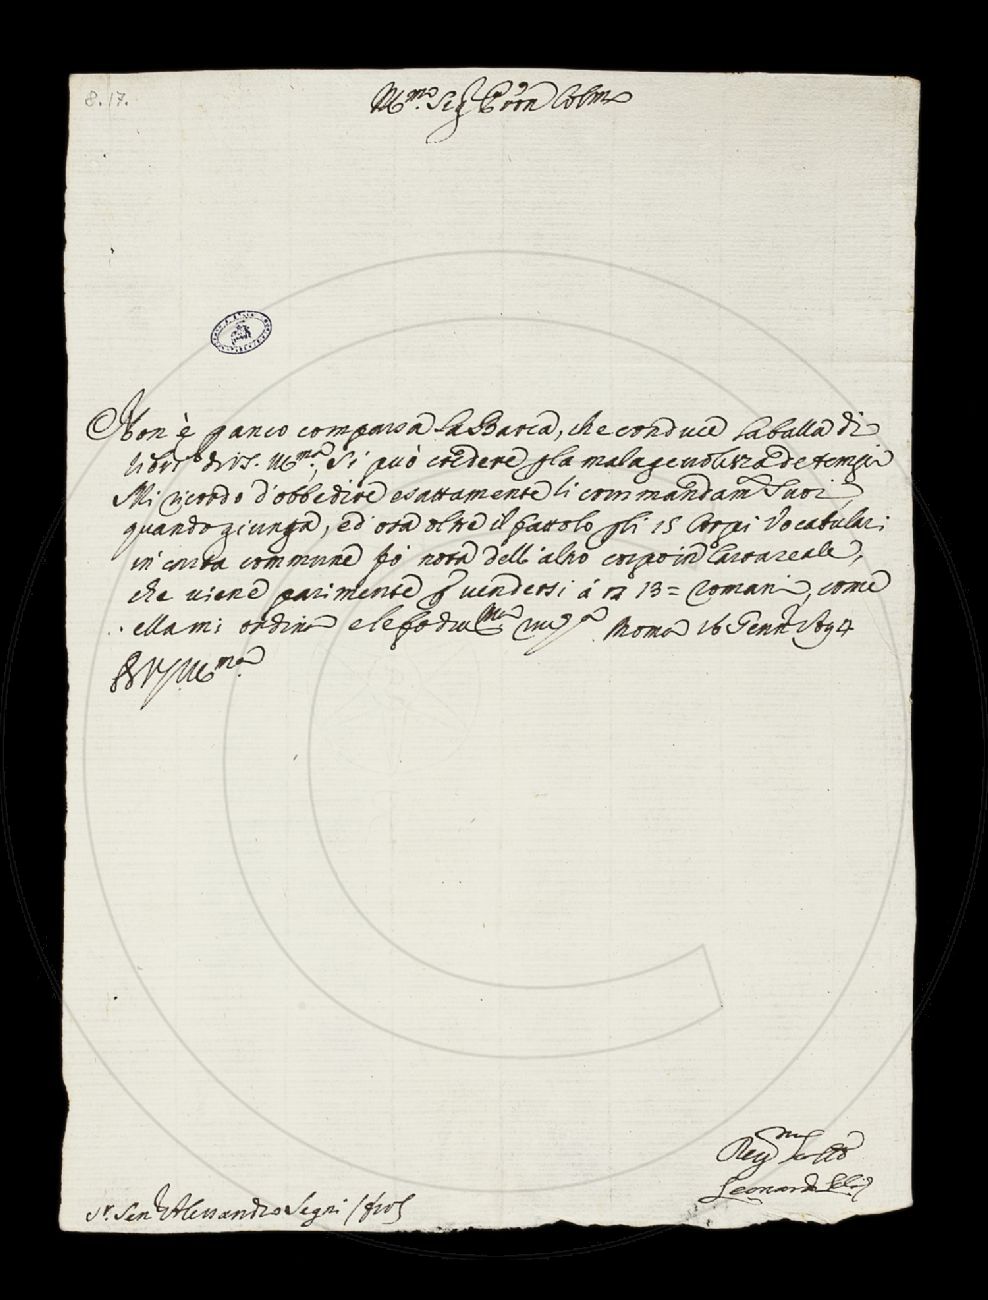 8.17.
Ill.mo Sig.r P'ron Col.mo
Non è p anco comparsa la Barca, che conduce la balla di
libri di V.S. Ill.ma, si può credere p la malagevolezza de tempi
Mi ricordo d'obbedire esattamente li commandam.ti Suoi
quando giunga, ed ora oltre il gattolo p li 15 Corpi Vocabulari
in carta commune fò nota dell'altro corpo in Carta reale,
che viene parimente p vendersi à 13 = romani, come
ella mi ordina e le fo div.ma Roma 16 Genn.o 1694
Di V.S. Ill.ma
S.r Sen.r Alessandro Segni
Leonardo